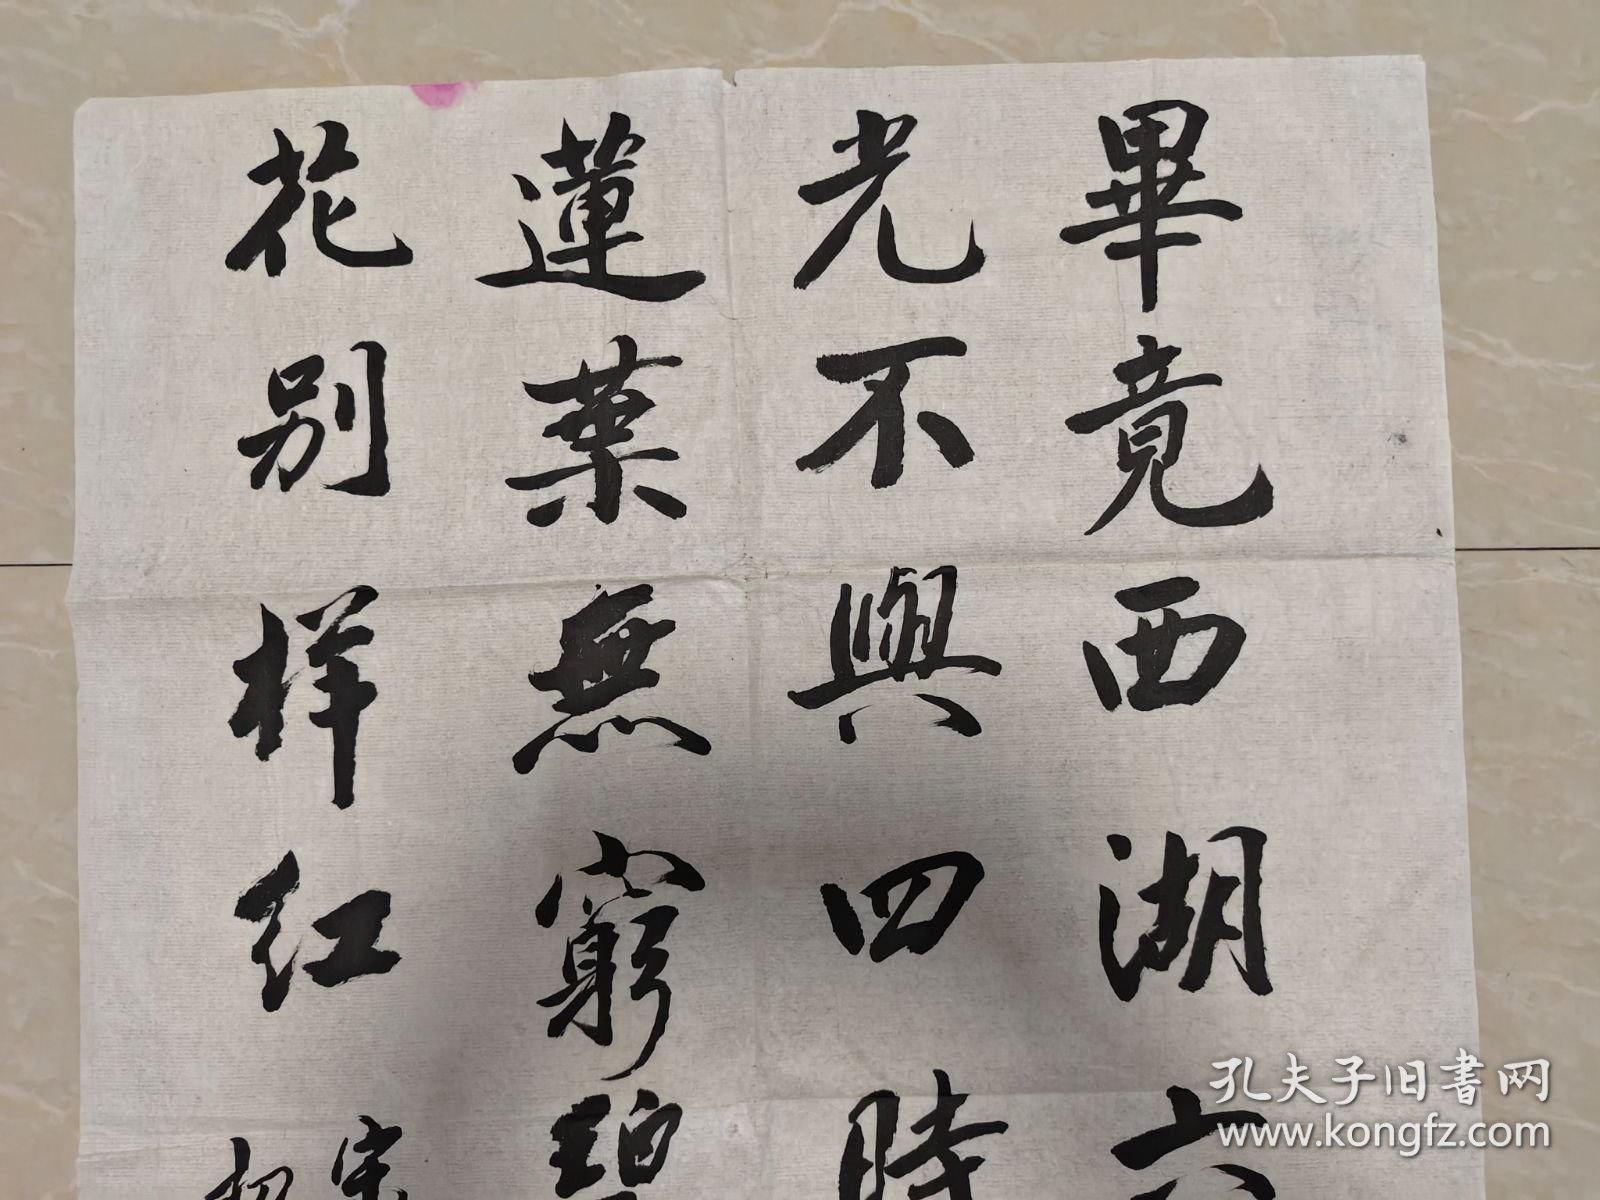 畢竟西湖六
光不與四時
蓮葉無窮碧
花别样红
宋
初
孔夫子旧书网
www.kongfz.com